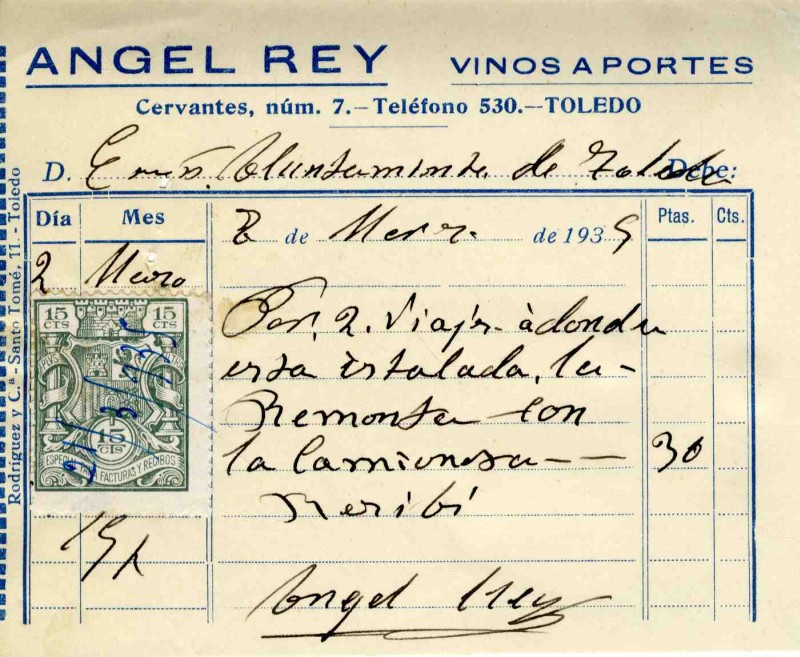 ANGEL REY VINOS A PORTES
Cervantes, núm. 7.-Teléfono 530.--TOLEDO
D. Ayuntamiento de Toledo Debe:
Día Mes 2 de Marzo de 1935 Ptas. Cts.
2 Marzo
Por. 2. Viajes à donde
esta istalada, la
Remonta con
la Camioneta -- 30
Recibí
Angel Rey
15 CTS 15 CTS
15 CTS
ESPECIAL PARA FACTURAS Y RECIBOS
2/3/935
Rodríguez y C.ª - Santo Tomé, 11. - Toledo